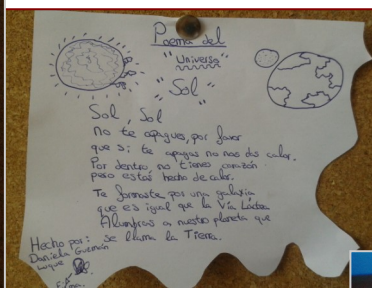 Poema del
"Universo"
"Sol"
Sol, Sol
no te apagues, por favor
que si te apagas no nos das calor.
Por dentro no tienes corazón
pero estás hecho de calor.
Te formaste por una galaxia
que es igual que la Vía Láctea
Alumbras a nuestro planeta que
se llama la Tierra.
Hecho por:
Daniela Guzmán
Luque
Firma.